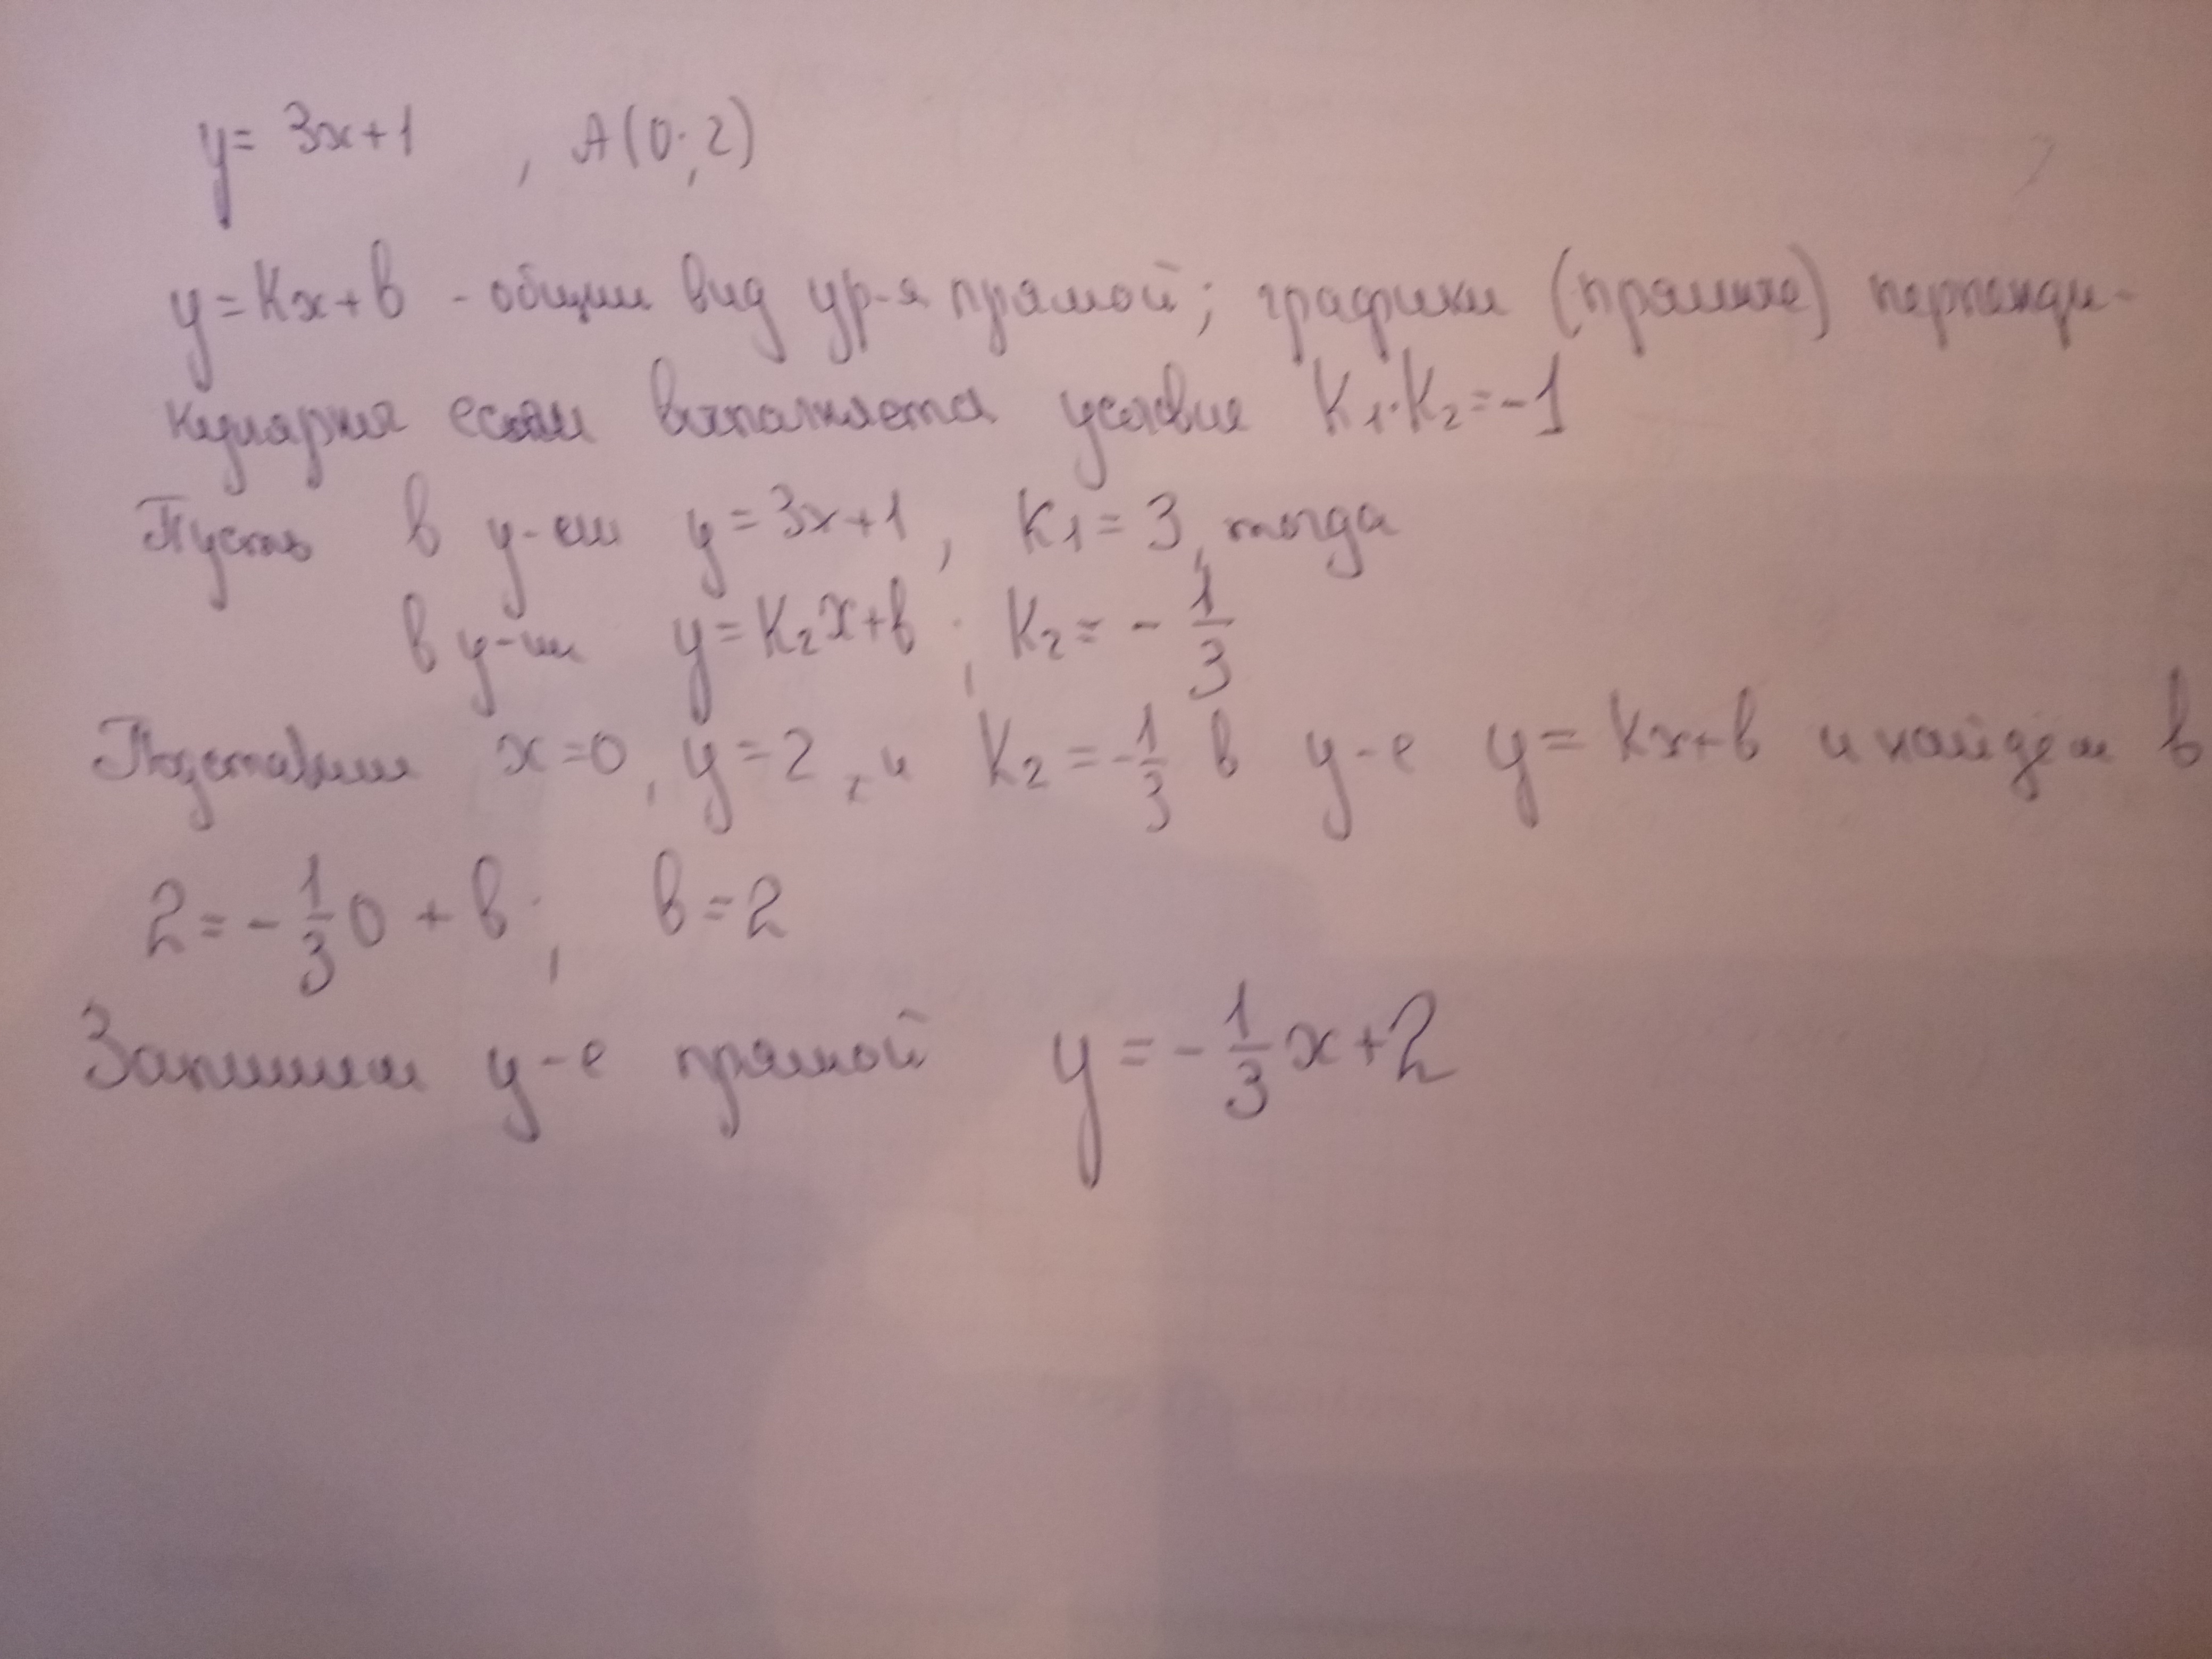 y = 3x+1 , A(0; 2)
y = Kx+в - общий вид ур-я прямой; графики (прямые) перпенди-
кулярны если выполняется условие K₁·K₂ = -1
Пусть в у-ии y = 3x+1, K₁ = 3, тогда
в у-ии y = K₂x+в ; K₂ = - 1/3
Подставим x = 0, y = 2, и K₂ = -1/3 в у-е y = Kx+в и найдём в
2 = - 1/3 0 + в ; в = 2
Запишем у-е прямой y = - 1/3 x + 2